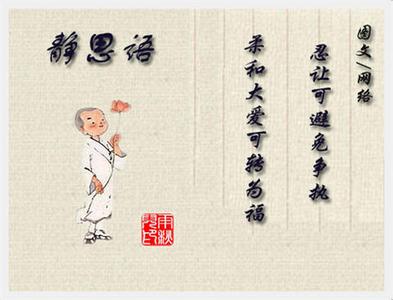 静思语
图文/网络
忍让可避免争执
柔和大爱可转为福